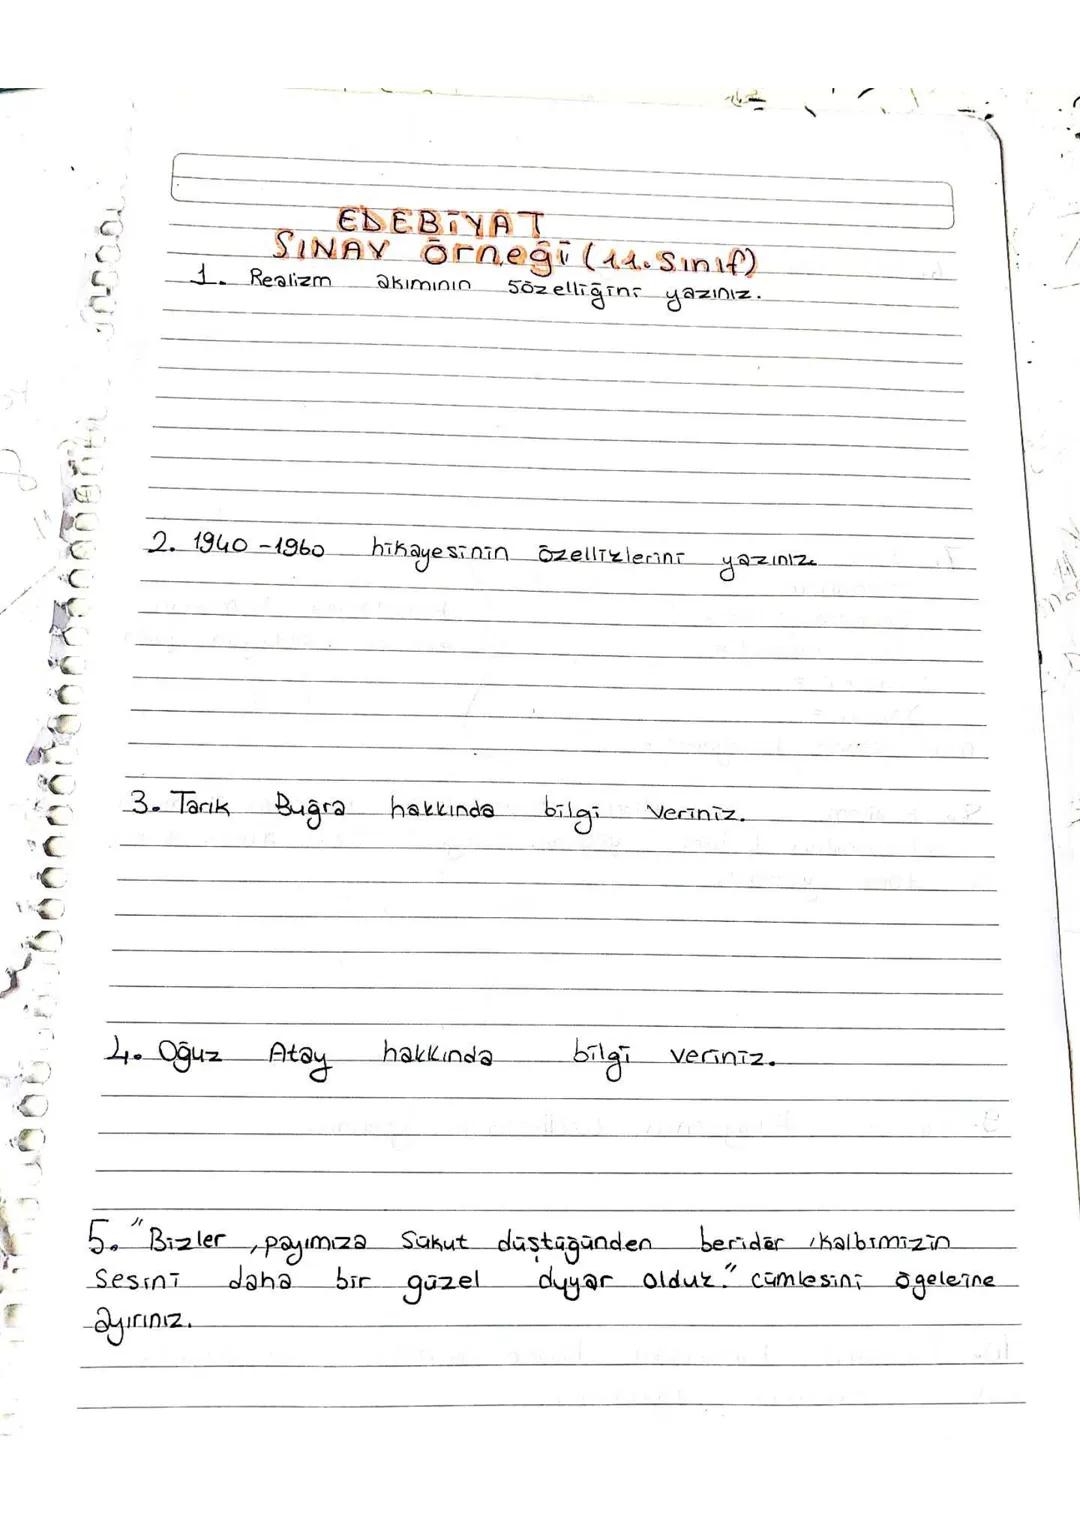 EDEBİYAT
SINAV örneği (11. Sınıf)
1. Realizm akımının 5özelliğini yazınız.
2. 1940-1960 hikayesinin özelliklerini yazınız
3. Tarık Buğra hakkında bilgi veriniz.
4. Oğuz Atay hakkında bilgi veriniz.
5. "Bizler, payımıza sükut düştüğünden beridir, kalbimizin
sesini daha bir güzel duyar olduk." cümlesini ögeleine
ayırınız.